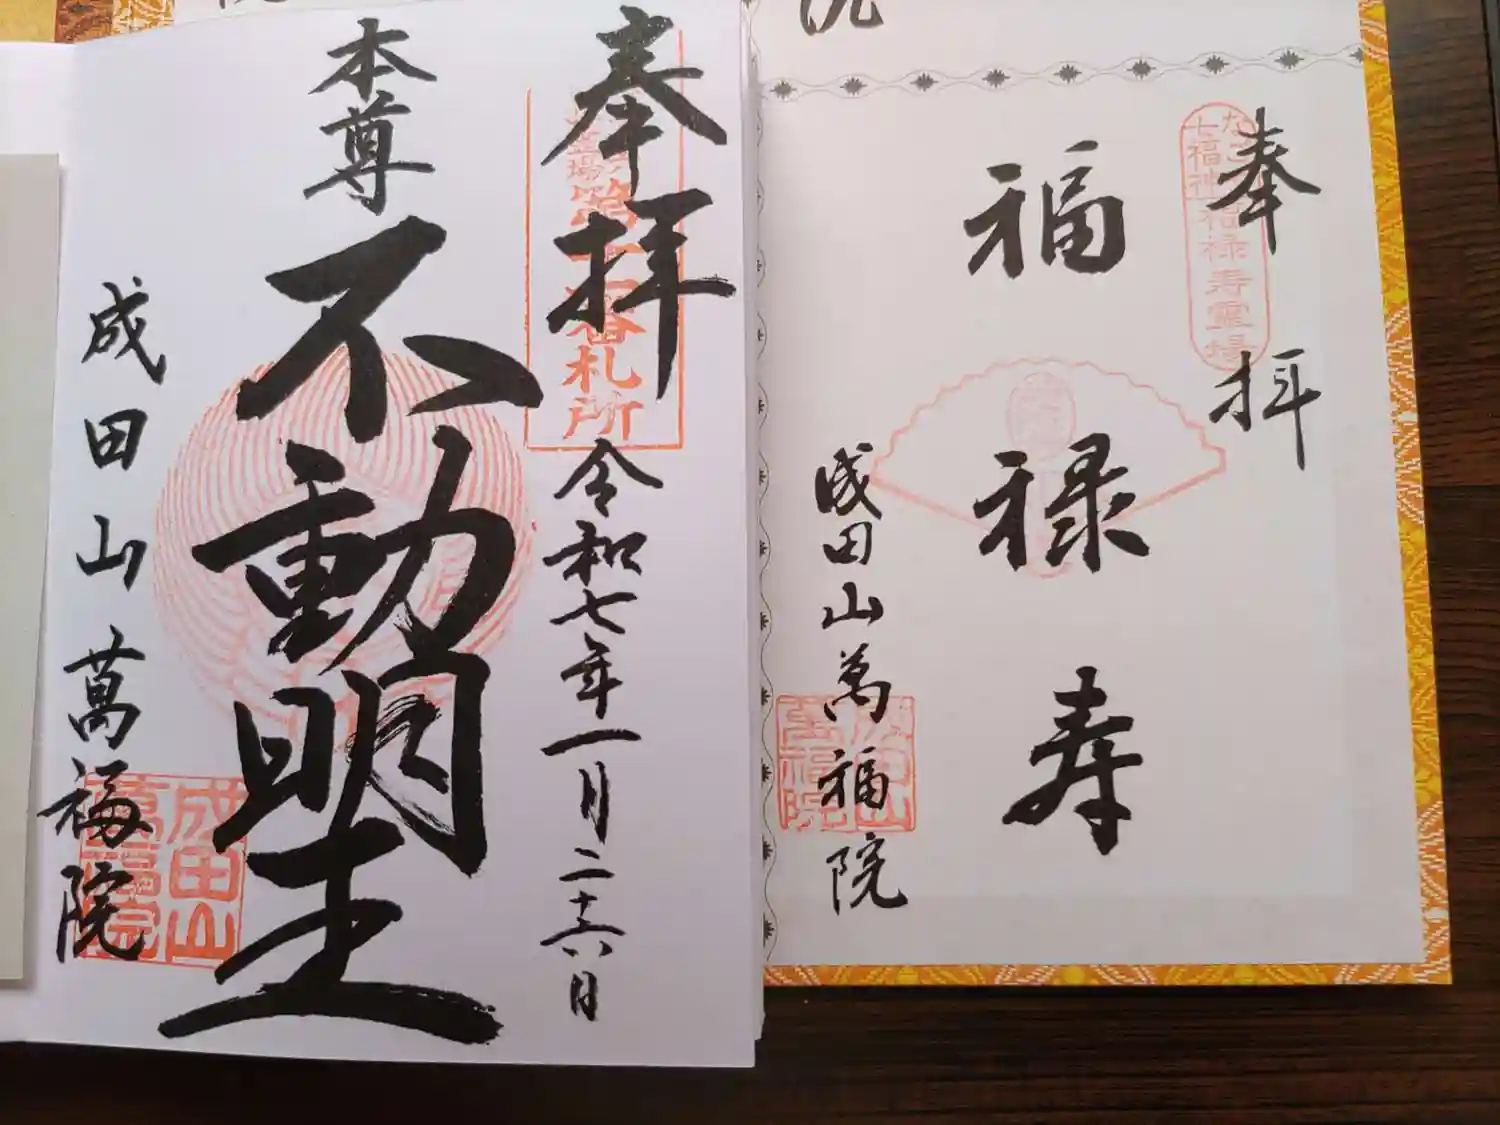 奉拝
番札所
令和七年一月二十六日
本尊
不動明王
成田山萬福院
成田山
萬福院
奉拝
七福神福禄寿霊場
福禄寿
成田山萬福院
院